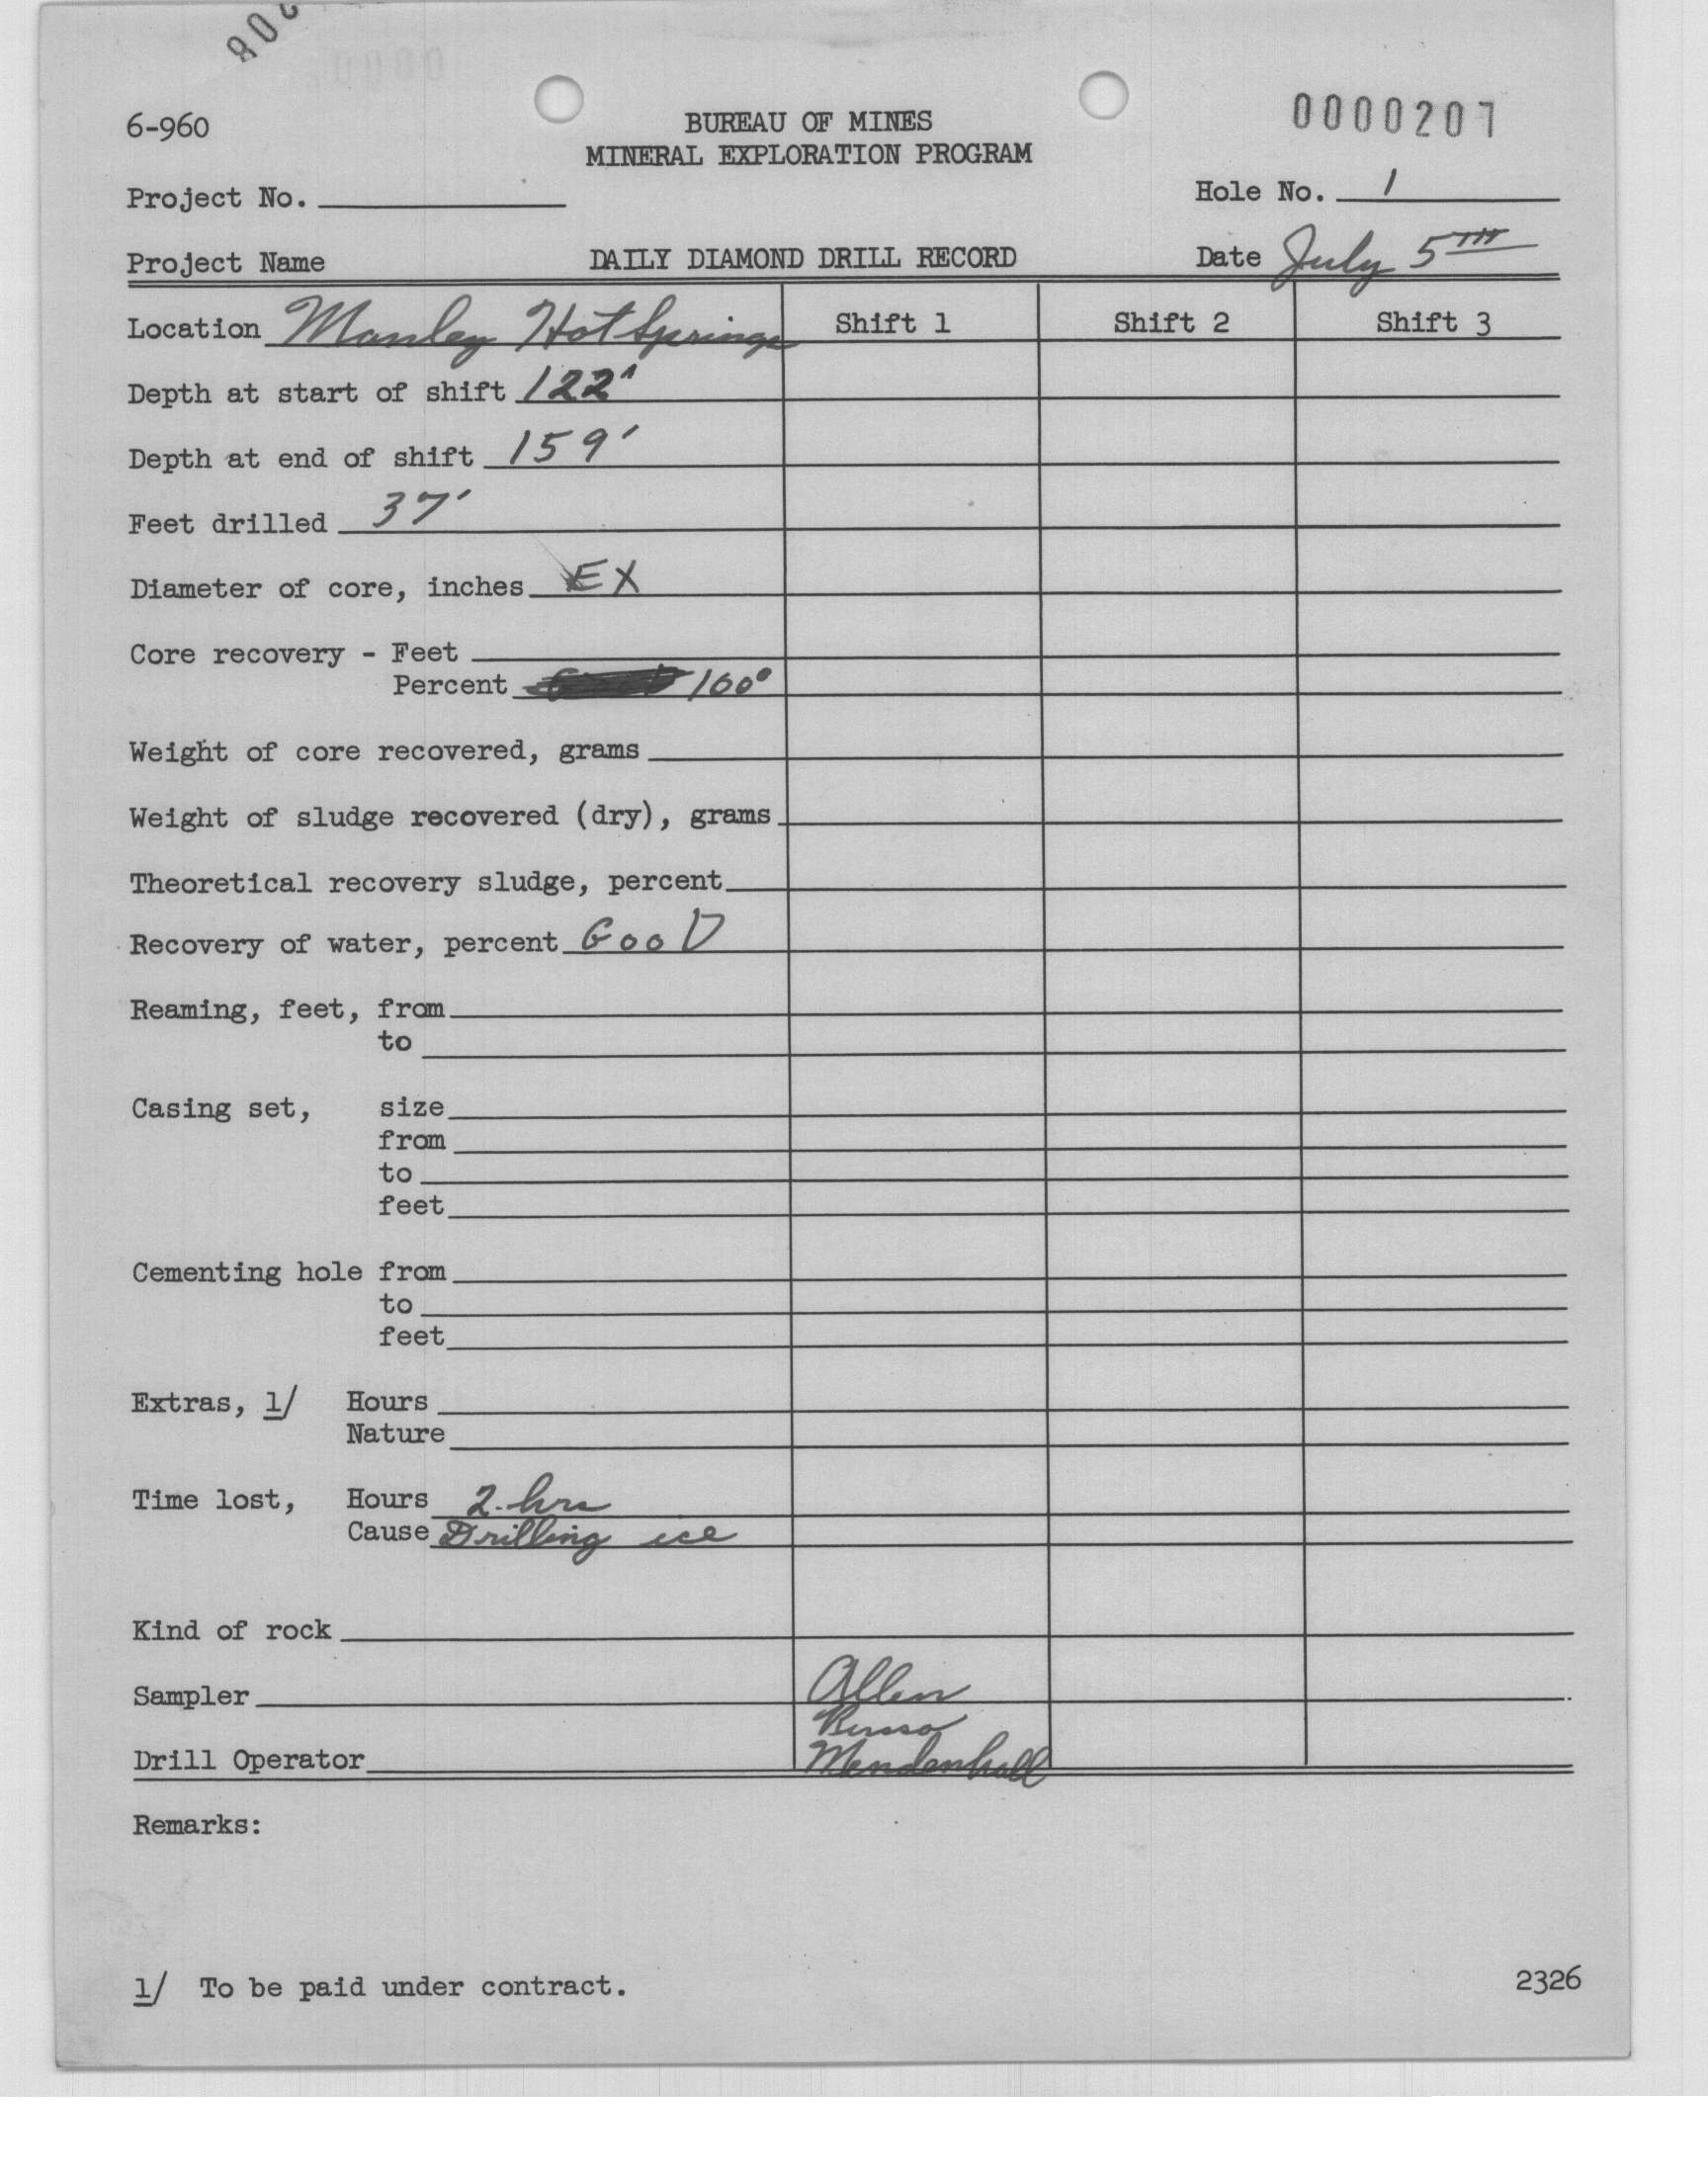 800
6-960
BUREAU OF MINES
0000207
MINERAL EXPLORATION PROGRAM
Project No.
Hole No. 1
Project Name
DAILY DIAMOND DRILL RECORD
Date July 5TH
Location Manley Hot Springs
Shift 1 Shift 2 Shift 3
Depth at start of shift 122'
Depth at end of shift 159'
Feet drilled 37'
Diameter of core, inches EX
Core recovery - Feet
Percent 100°
Weight of core recovered, grams
Weight of sludge recovered (dry), grams
Theoretical recovery sludge, percent
Recovery of water, percent GooD
Reaming, feet, from
to
Casing set, size
from
to
feet
Cementing hole from
to
feet
Extras, 1/ Hours
Nature
Time lost, Hours 2 hrs
Cause Drilling ice
Kind of rock
Sampler Allen
Russo
Drill Operator Mendenhall
Remarks:
1/ To be paid under contract.
2326